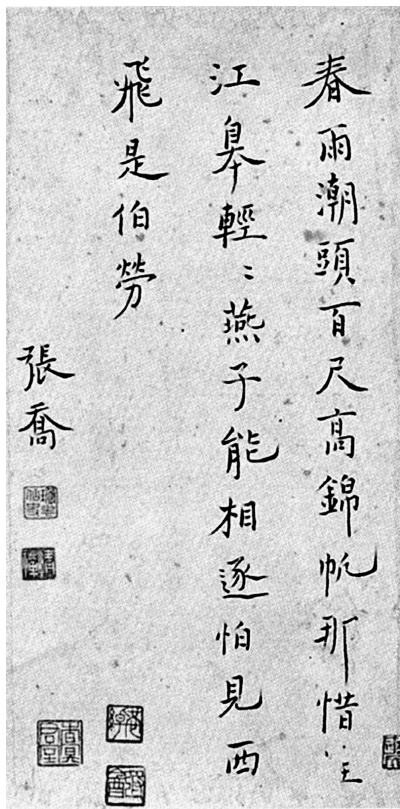 春雨潮頭百尺高錦帆那惜
江臯輕〻燕子能相逐怕見西
飛是伯勞
張喬